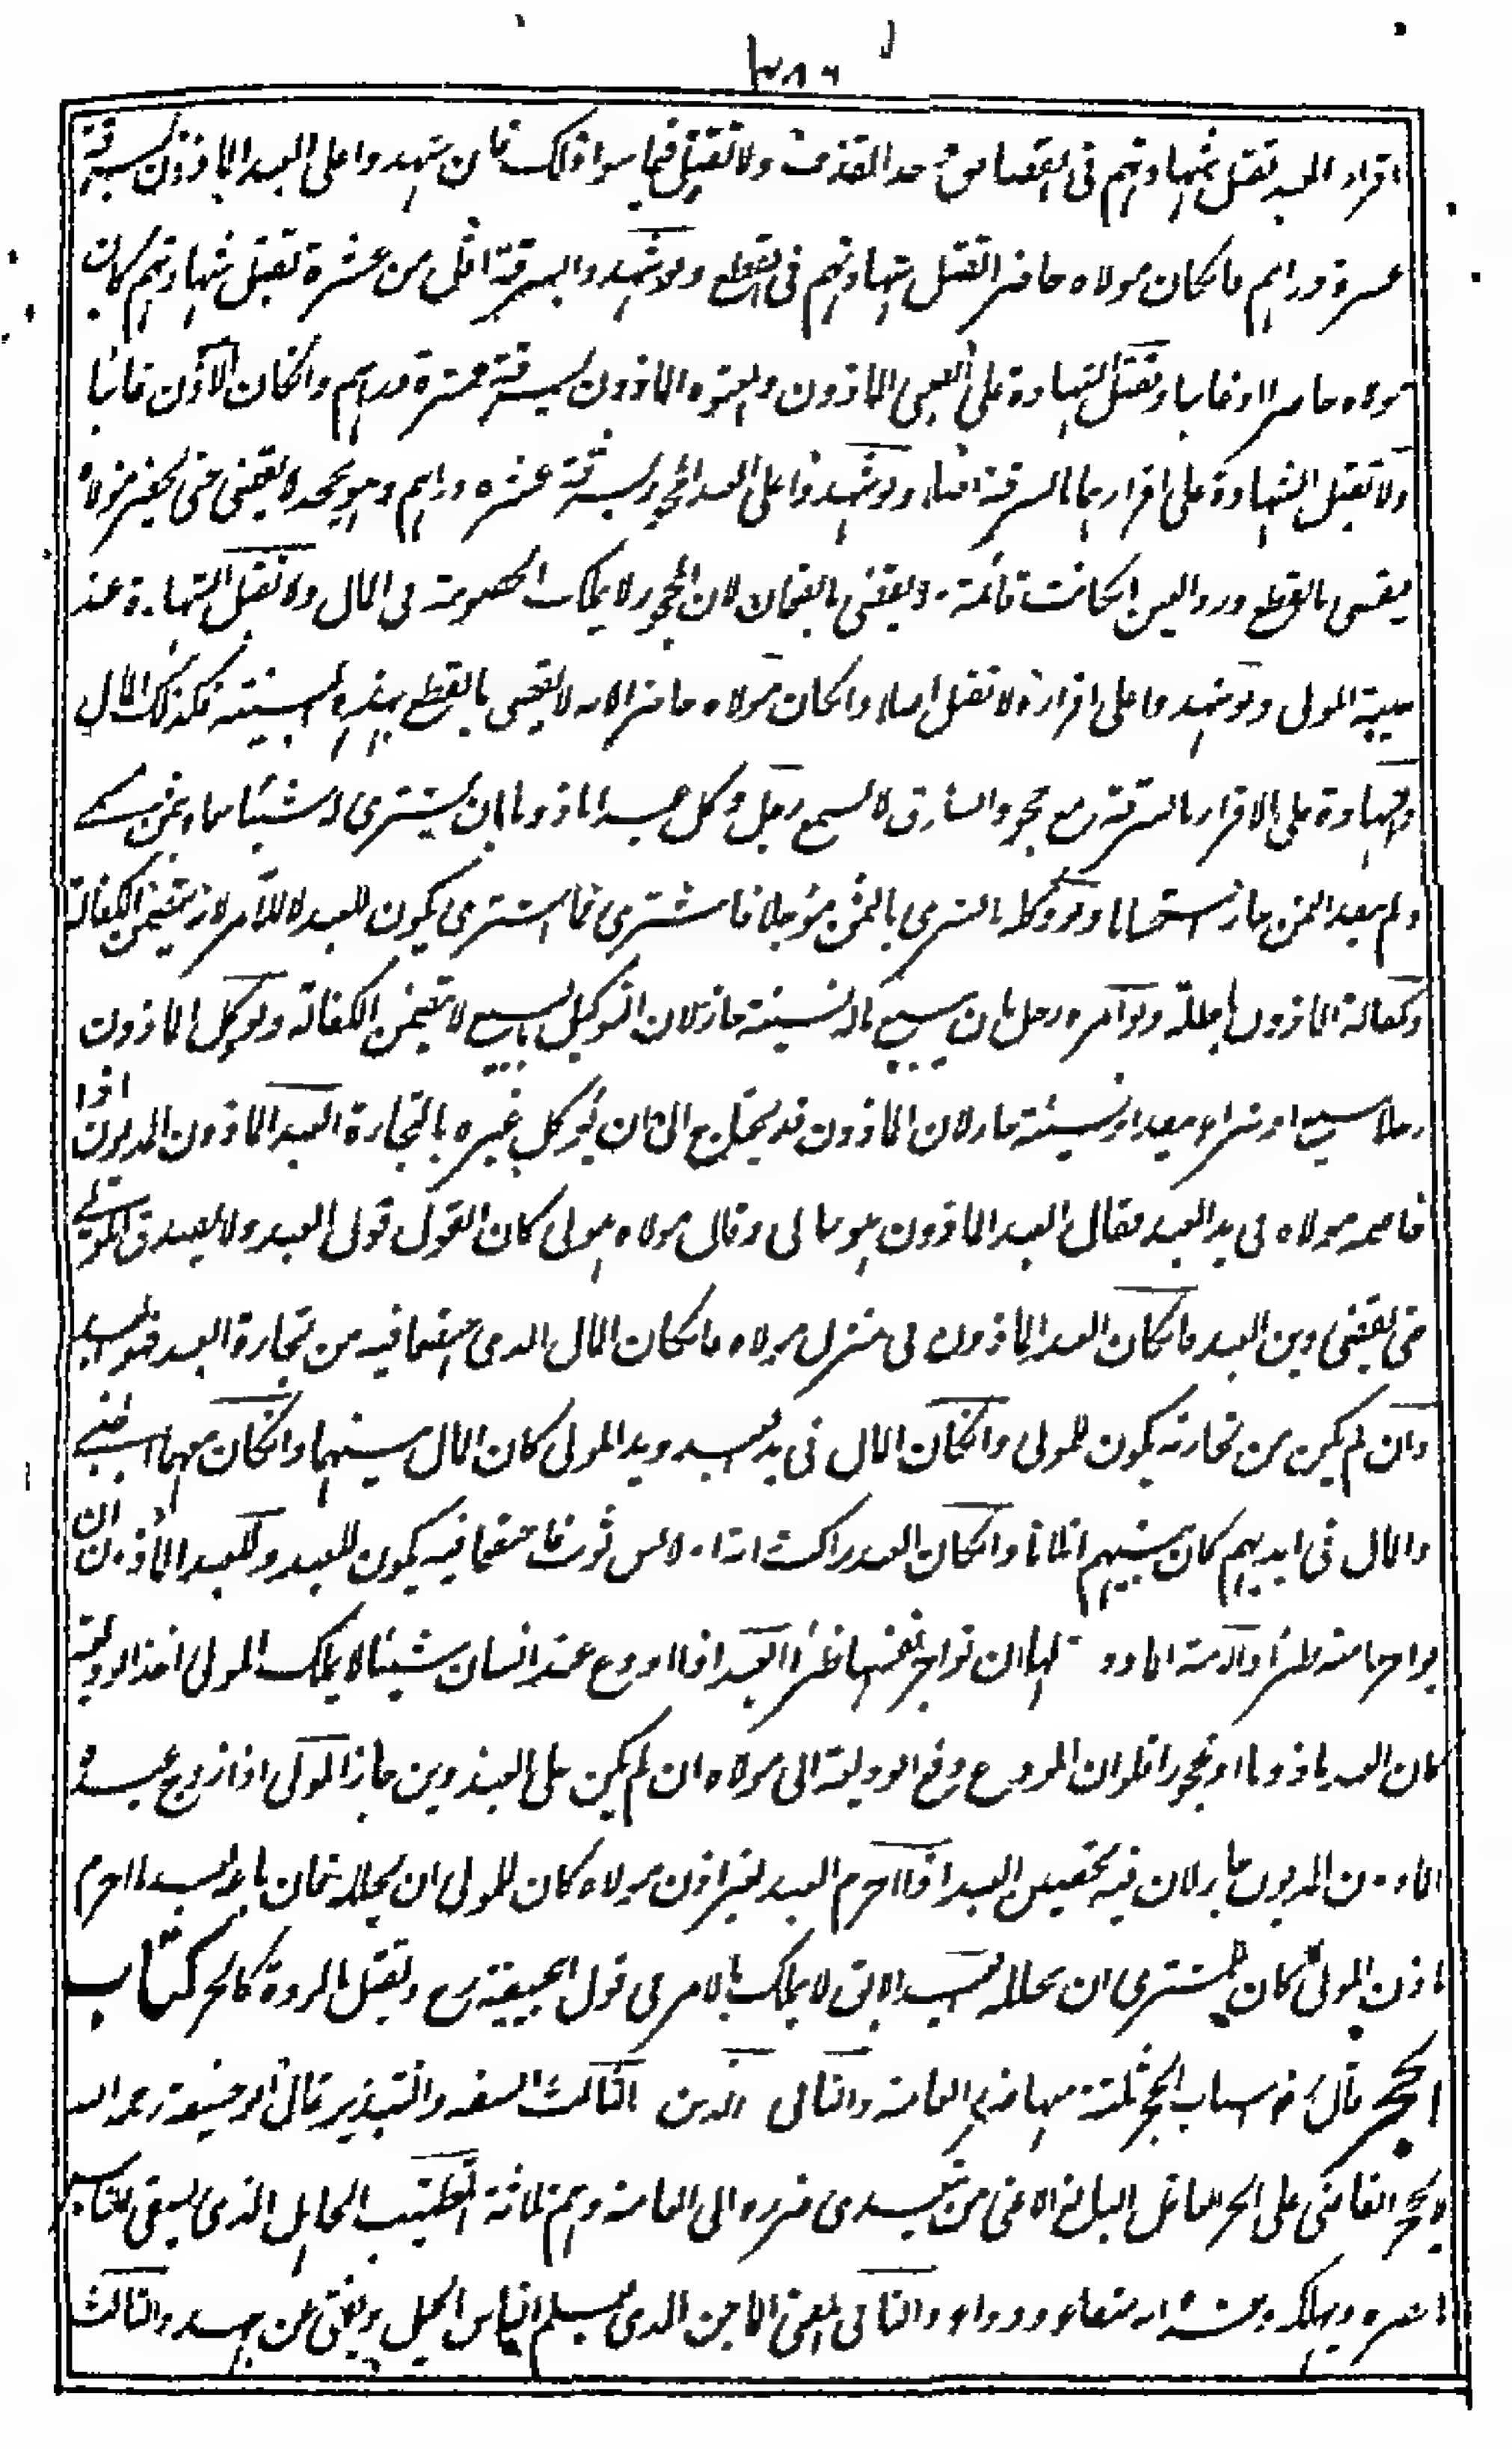 اقرار العبد تقبل شهادتهم فى القصاص و حد القذف ولا تقبل فيما سوا ذلك فان شهدوا على العبد الماذون بسرقة
عشرة دراهم فانكان مولاه حاضرا تقبل شهادتهم فى القطع ولو شهدوا بسرقة اقل من عشرة تقبل شهادتهم كان
مولاه حاضرا او غايبا وتقبل الشهادة على الصبى الماذون والمعتوه الماذون بسرقة عشرة دراهم وانكان الاذن غائبا
ولا تقبل الشهادة على اقرارهما بالسرقة اصلا ولو شهدوا على العبد المحجور بسرقة عشرة دراهم وهو يجحد لا يقضى حتى يحضر مولاه
يقضى بالقطع ورد العين انكانت قائمة ولا يقضى بالضمان لان المحجور لا يملك الخصومة فى المال ولا تقبل الشهادة عند
غيبة المولى ولو شهدوا على اقراره لا تقبل اصلا وانكان مولاه حاضرا لا يقضى بالقطع بهذه البينة فكذلك المال
والشهادة على الاقرار بالسرقة مع جحود السارق لا تسمع رجل وكل عبدا ماذونا بان يشترى له شيئا سماه بثمن مسمى
ولم يعد الثمن جاز استحسانا ولو وكله بالشرى بالثمن مؤجلا فاشترى فما اشترى يكون للعبد لا للآمر لانه يتضمن الكفالة
وكفالة الماذون باطلة ولو آمره رجل بان يبيع ماله نسيئة جاز لان التوكيل بالبيع لا يتضمن الكفالة ولو وكل الماذون
رجلا ببيع او شراء بنقد او نسيئة جاز لان الماذون قد يحتاج الى ان يوكل غيره بالتجارة العبد الماذون المديون اذا
خاصمه مولاه فى يد العبد فقال العبد الماذون هو مالى وقال مولاه هو لى كان القول قول العبد ولا يصدق المولى
حتى يقضى دين العبد فانكان العبد الماذون فى منزل مولاه فانكان المال الذى اختصما فيه من تجارة العبد فهو للعبد
وان لم يكن من تجارته يكون للمولى وانكان المال فى يد العبد ويد المولى كان المال بينهما وانكان معهما اجنبى
والمال فى ايديهم كان بينهم اثلاثا وانكان العبد راكب دابة او لابس ثوب فاختصما فيه يكون للعبد وللعبد الماذون ان
يواجر امته ظئرا والامة الماذونة لها ان تواجر نفسها ظئرا العبد اذا اودع عند انسان شيئا لا يملك المولى اخذ الوديعة
كان العبد ماذونا او محجورا فلو ان المودع دفع الوديعة الى مولاه ان لم يكن على العبد دين جاز المولى اذا زوج عبده
الماذون المديون جاز لان فيه تحصين العبد اذا احرم العبد بغير اذن مولاه كان للمولى ان يحلله فان باع العبد احرم
باذن المولى كان للمشترى ان يحلله العبد الابق لا يملك بالامر فى قول ابيحنيفة رح وتقبل الردة كالحر كتاب
الحجر قال رض اسباب الحجر ثلثة منها ضرر العامة والثانى الدين الثالث السفه والتبذير قال ابو حنيفة رحمه الله
لا يحجر القاضى على الحر العاقل البالغ الا فى من يتعدى ضرره الى العامة وهم ثلاثة الطبيب الجاهل الذى يسقى الناس
ما يضره ويهلكه وعنده انه شفاء ودواء والثانى المفتى الماجن الذى يعلم الناس الحيل ويفتى عن جهل والثالث